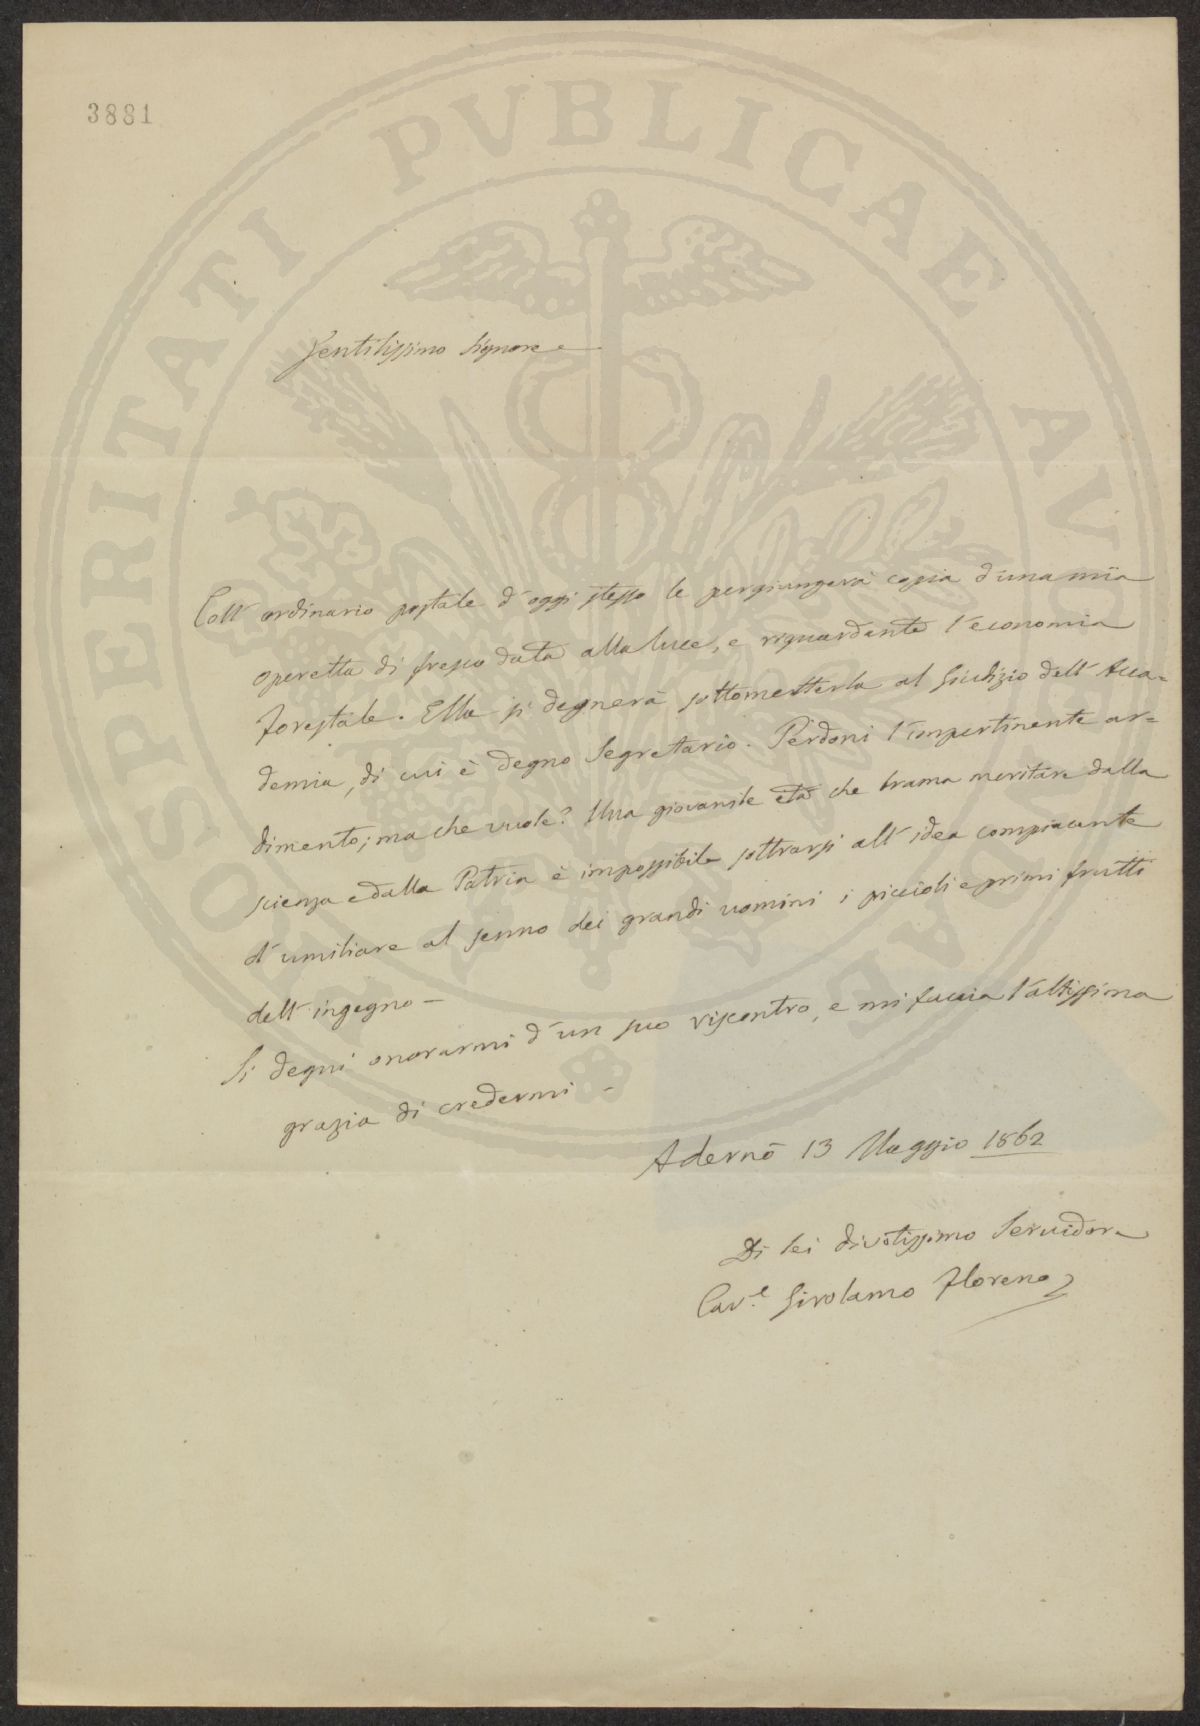 3881
PROSPERITATI PVBLICAE AVGENDAE
Gentilissimo Signore
Coll' ordinario postale d'oggi stesso le pergiungerà copia d'una mia
operetta di fresco data alla luce, e riguardante l'economia
forestale. Ella si degnerà sottometterla al Giudizio dell' Acca=
demia, di cui è degno Segretario. Perdoni l'impertinente ar=
dimento; ma che vuole? Una giovanile età che brama meritare dalla
scienza e dalla Patria è impossibile sottrarsi all' idea compiacente
d' umiliare al senno dei grandi uomini i piccioli e primi frutti
dell' ingegno —
Si degni onorarmi d'un suo riscontro, e mi faccia l'altissima
grazia di credermi –
Adernò 13 Maggio 1862
Di lei divotissimo Servidore
Cav.e Girolamo Floreno